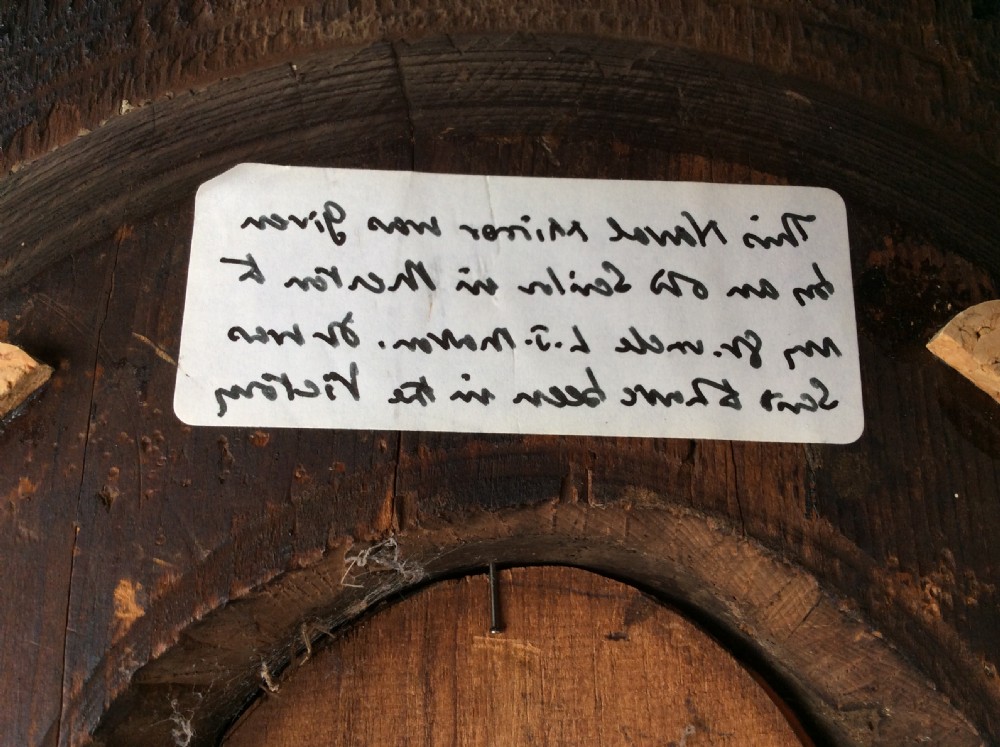 This Naval Mirror was given
by an old Sailor in Merton to
my gr. uncle L.J. It was
Said to have been in the Victory